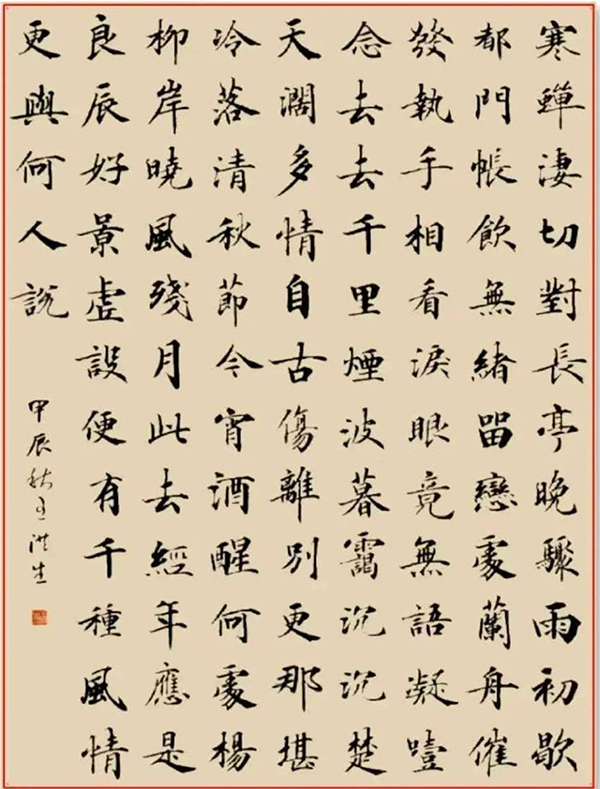 寒蟬淒切對長亭晚驟雨初歇
都門帳飲無緒留戀處蘭舟催
發執手相看淚眼竟無語凝噎
念去去千里煙波暮靄沉沉楚
天濶多情自古傷離別更那堪
冷落清秋節今宵酒醒何處楊
柳岸曉風殘月此去經年應是
良辰好景虛設便有千種風情
更與何人說
甲辰秋王洪生